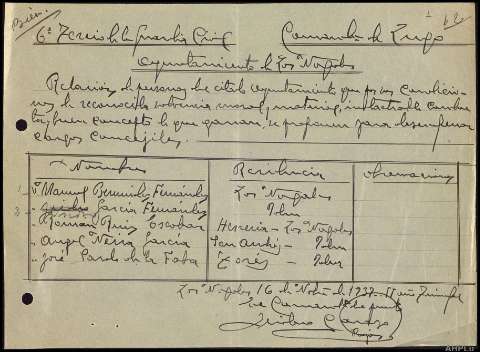 Bien.
6º Tercio de la Guardia Civil Comandª de Lugo
Ayuntamiento de Los Nogales
Relación de personas de citado Ayuntamiento que por sus condicio-
nes de reconocida solvencia moral, material, intachable conduc-
ta, buen concepto de que gozan, se proponen para desempeñar
cargos concejiles.
Nombres Residencia Observaciones
1 Dº Manuel Bermúdez Fernández Los Nogales
2 García Fernández Idem
Román Ruiz Escobar Herrería - Los Nogales
Angel Neira García San Andrés - Idem
José Pardo de la Faba Idem
Los Nogales 16 de 1937- II año Triunfal
El Comandante de puesto
AHPLU